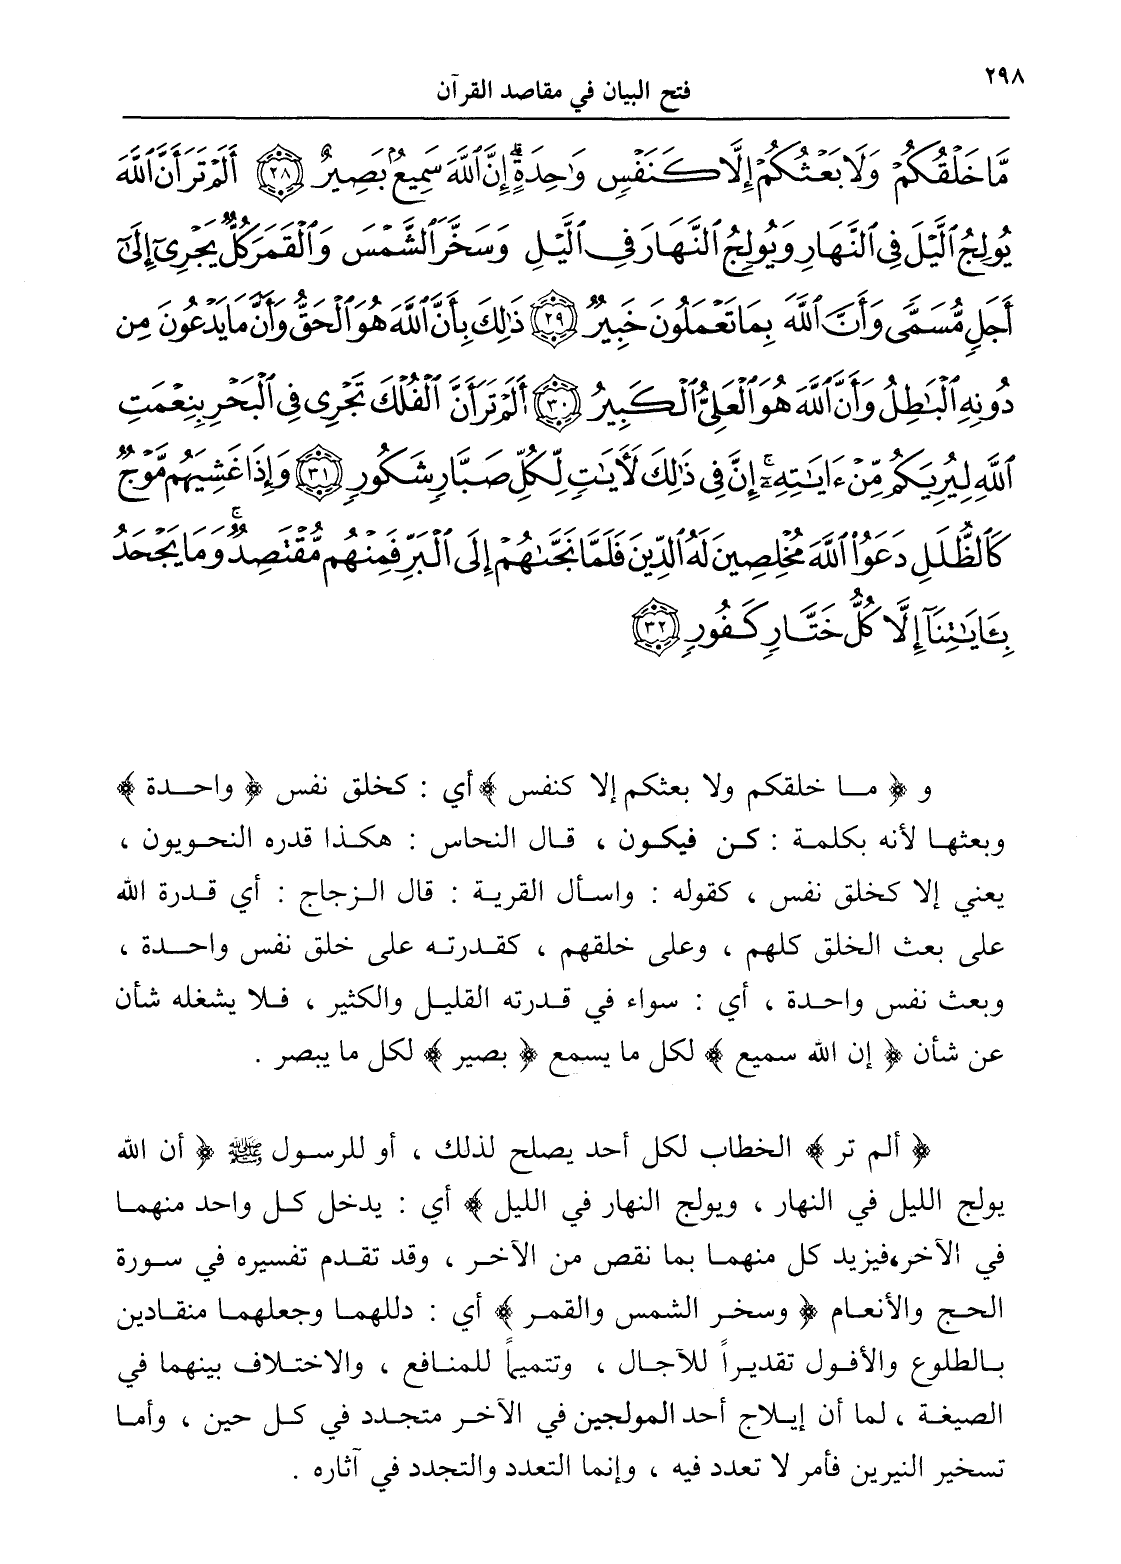 ٢٩٨
فتح البيان في مقاصد القرآن
مَّا خَلْقُكُمْ وَلَا بَعْثُكُمْ إِلَّا كَنَفْسٍ وَٰحِدَةٍ ۗ إِنَّ ٱللَّهَ سَمِيعٌۢ بَصِيرٌ ﴿٢٨﴾ أَلَمْ تَرَ أَنَّ ٱللَّهَ
يُولِجُ ٱلَّيْلَ فِى ٱلنَّهَارِ وَيُولِجُ ٱلنَّهَارَ فِى ٱلَّيْلِ وَسَخَّرَ ٱلشَّمْسَ وَٱلْقَمَرَ كُلٌّ يَجْرِىٓ إِلَىٰٓ
أَجَلٍ مُّسَمًّى وَأَنَّ ٱللَّهَ بِمَا تَعْمَلُونَ خَبِيرٌ ﴿٢٩﴾ ذَٰلِكَ بِأَنَّ ٱللَّهَ هُوَ ٱلْحَقُّ وَأَنَّ مَا يَدْعُونَ مِن
دُونِهِ ٱلْبَٰطِلُ وَأَنَّ ٱللَّهَ هُوَ ٱلْعَلِىُّ ٱلْكَبِيرُ ﴿٣٠﴾ أَلَمْ تَرَ أَنَّ ٱلْفُلْكَ تَجْرِى فِى ٱلْبَحْرِ بِنِعْمَتِ
ٱللَّهِ لِيُرِيَكُم مِّنْ ءَايَٰتِهِۦٓ ۚ إِنَّ فِى ذَٰلِكَ لَأٓيَٰتٍ لِّكُلِّ صَبَّارٍ شَكُورٍ ﴿٣١﴾ وَإِذَا غَشِيَهُم مَّوْجٌ
كَٱلظُّلَلِ دَعَوُا۟ ٱللَّهَ مُخْلِصِينَ لَهُ ٱلدِّينَ فَلَمَّا نَجَّىٰهُمْ إِلَى ٱلْبَرِّ فَمِنْهُم مُّقْتَصِدٌ ۚ وَمَا يَجْحَدُ
بِـَٔايَٰتِنَآ إِلَّا كُلُّ خَتَّارٍ كَفُورٍ ﴿٣٢﴾
و ﴿ مـا خلقكم ولا بعثكم إلا كنفس ﴾ أي : كخلق نفس ﴿ واحـدة ﴾
وبعثها لأنه بكلمة : كن فيكون ، قال النحاس : هكذا قدره النحويون ،
يعني إلا كخلق نفس ، كقوله : واسأل القرية : قال الزجاج : أي قدرة الله
على بعث الخلق كلهم ، وعلى خلقهم ، كقدرته على خلق نفس واحدة ،
وبعث نفس واحدة ، أي : سواء في قدرته القليل والكثير ، فلا يشغله شأن
عن شأن ﴿ إن الله سميع ﴾ لكل ما يسمع ﴿ بصير ﴾ لكل ما يبصر .
﴿ ألم تر ﴾ الخطاب لكل أحد يصلح لذلك ، أو للرسول ﷺ ﴿ أن الله
يولج الليل في النهار ، ويولج النهار في الليل ﴾ أي : يدخل كل واحد منهما
في الآخر،فيزيد كل منهما بما نقص من الآخر ، وقد تقدم تفسيره في سورة
الحج والأنعام ﴿ وسخر الشمس والقمر ﴾ أي : ذللهما وجعلهما منقادين
بالطلوع والأفول تقديراً للآجال ، وتتميماً للمنافع ، والاختلاف بينهما في
الصيغة ، لما أن إيلاج أحد المولجين في الآخر متجدد في كل حين ، وأما
تسخير النيرين فأمر لا تعدد فيه ، وإنما التعدد والتجدد في آثاره .